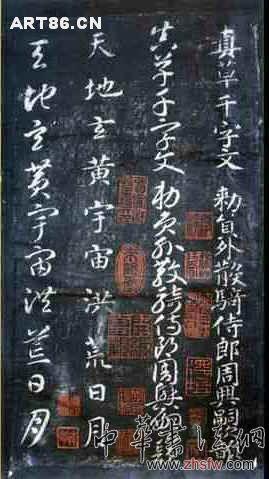 ART86.CN
真草千字文 敕員外散騎侍郎周興嗣次韻
真草千字文 敕員外散騎侍郎周興嗣次韻
天地玄黃宇宙洪荒日月
天地玄黃宇宙洪荒日月
中華書法網
www.zhsfw.com